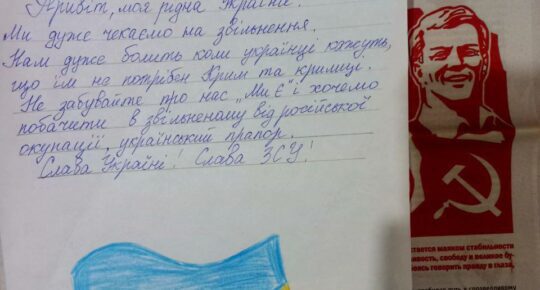 Привіт, моя рідна Україно!
Ми дуже чекаємо на звільнення.
Нам дуже болить коли українці кажуть,
що їм на потрібен Крим та кримці.
Не забувайте про нас „Ми Є" і хочемо
побачити в звільненому від російської
окупації, український прапор.
Слава Україні! Слава ЗСУ!
маяком стабильности
свободу и великое бу-
говорить правду в глаза,